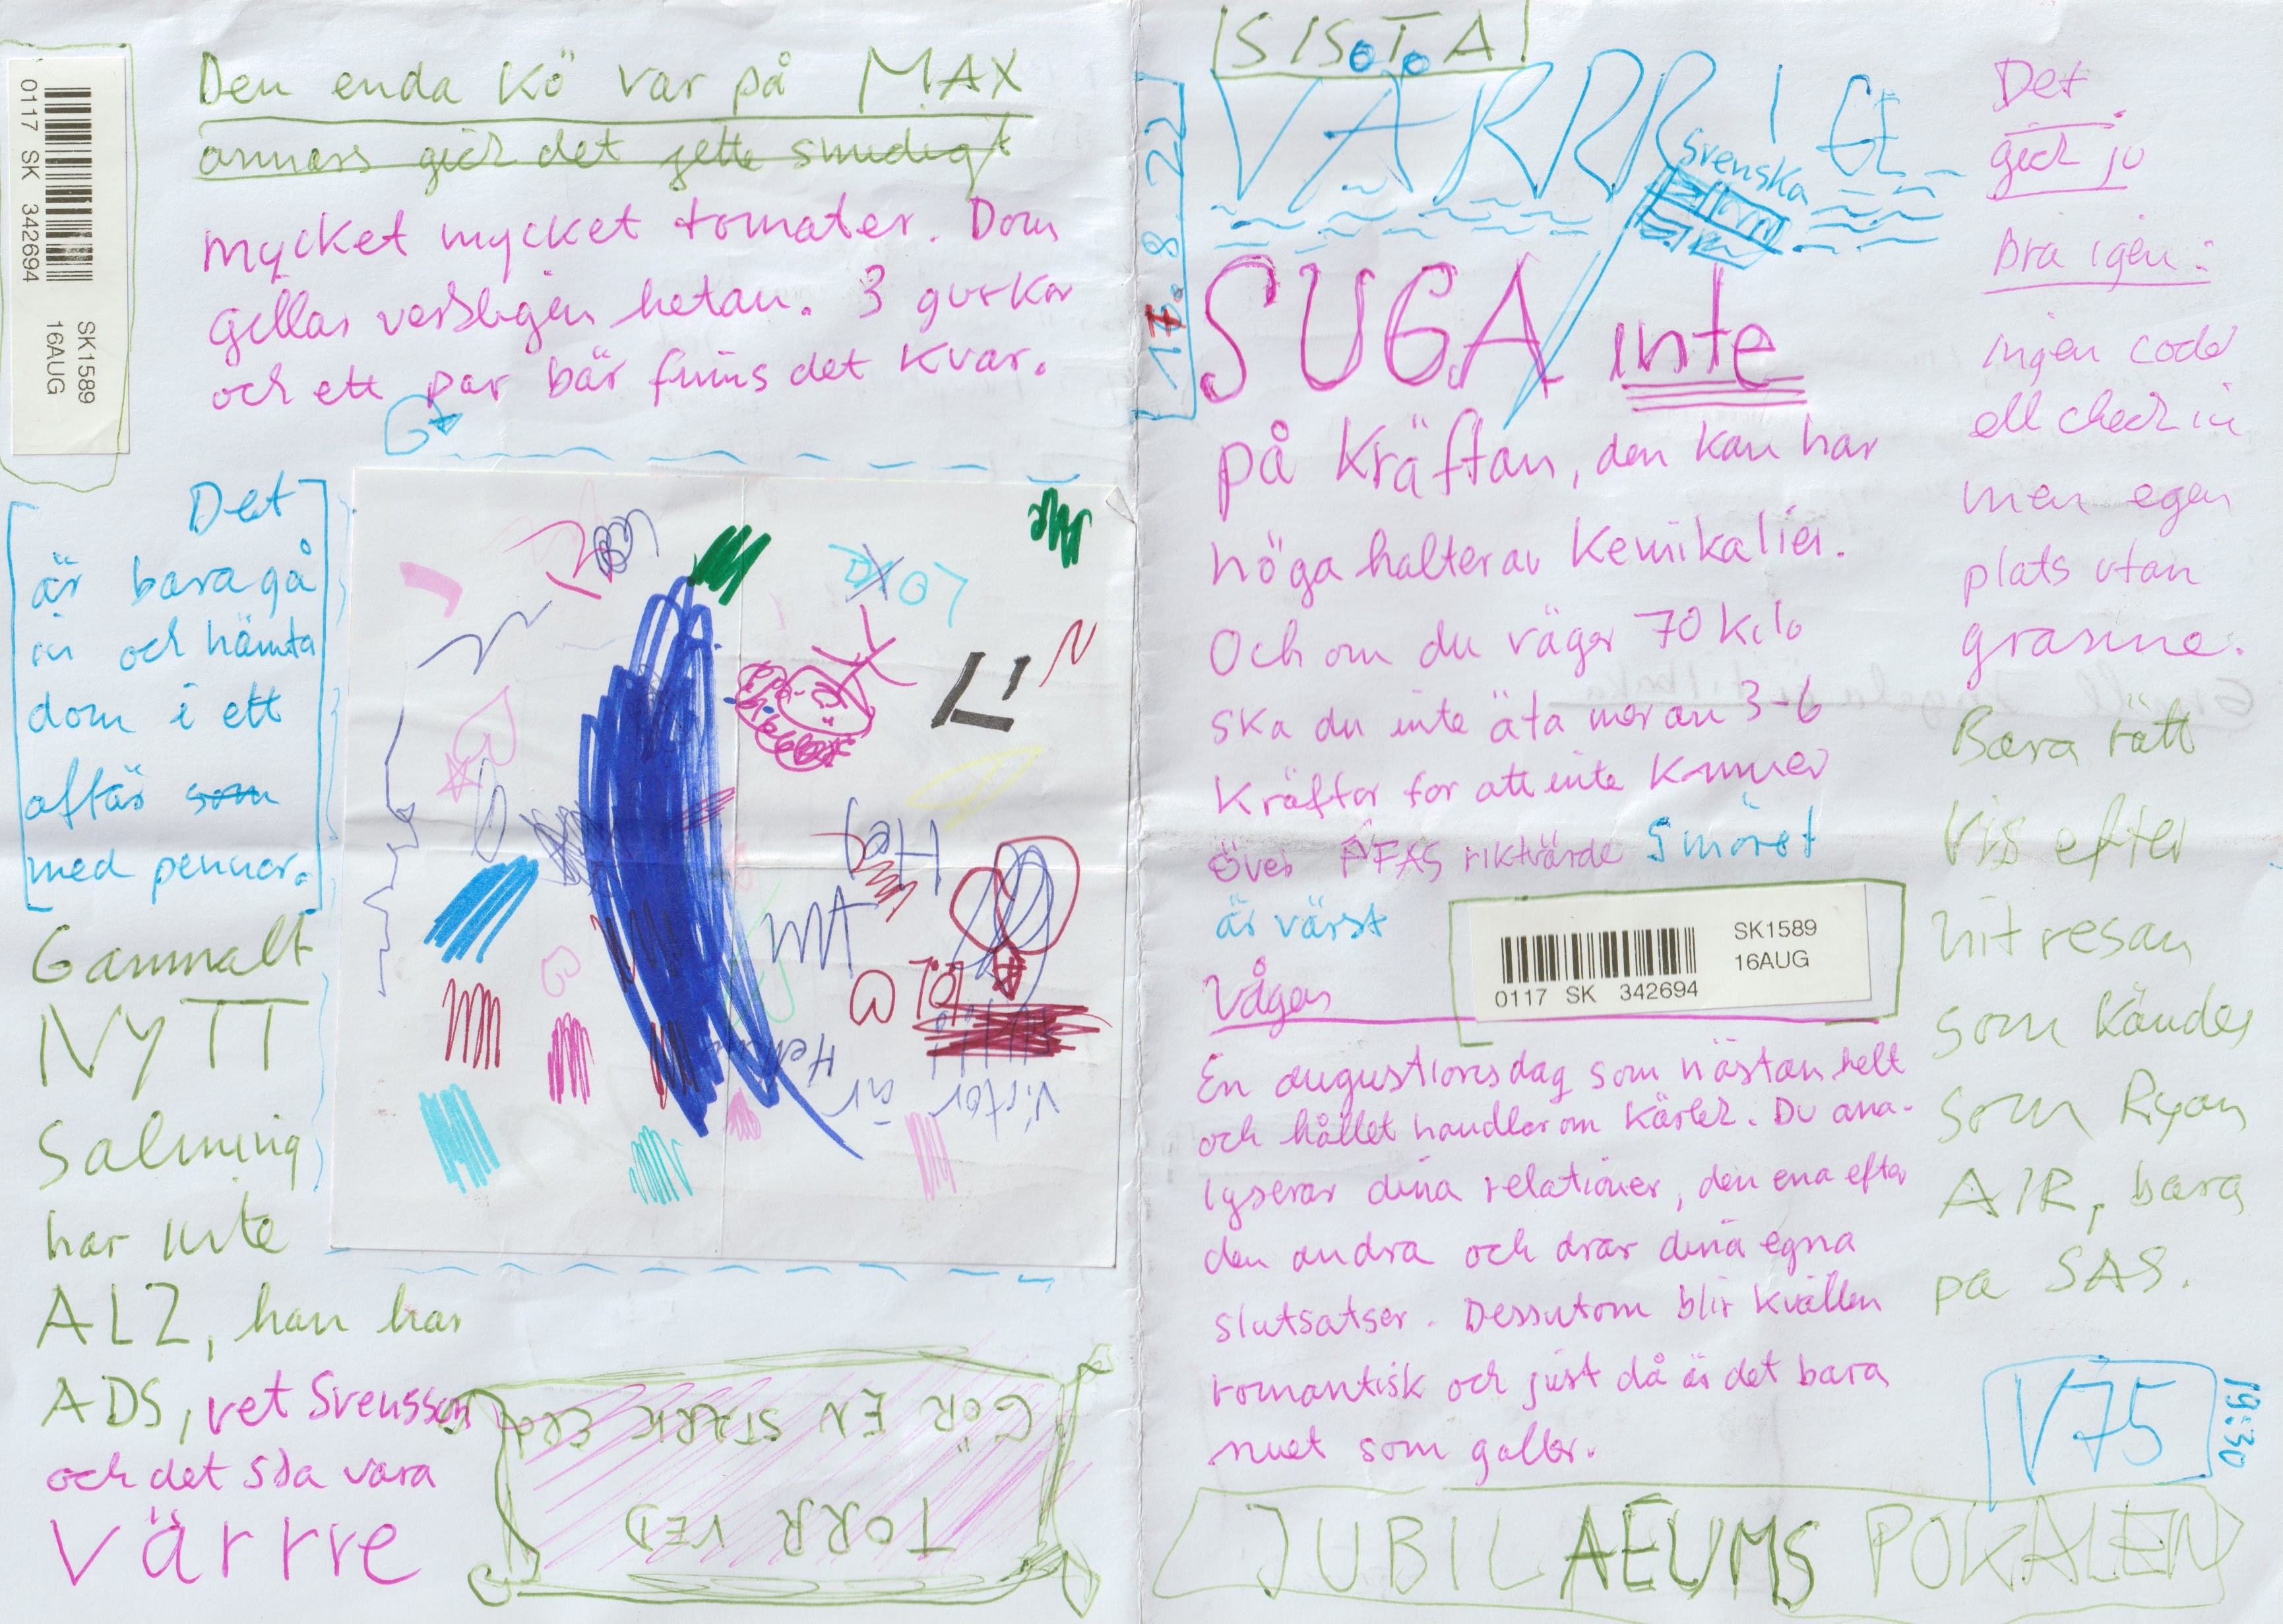 Den enda kö var på MAX
annars gick det jette smidigt
mycket mycket tomater. Dom
gillar verkligen hetan. 3 gurkor
och ett par bär finns det kvar.
0117 SK 342694
SK1589
16AUG
Det
är bara gå
in och hämta
dom i ett
affär som
med pennor.
Gammalt
NYTT
Salming
har inte
ALZ, han har
ADS, vet Svensson
och det ska vara
värrre
Hej
Viktor är
GÖR EN STARK ELD
TORR VED
SISTA
17.8.22
VÄRRRE
svenska
SUGA inte
på kräftan, den kan har
höga halter av kemikalier.
Och om du väger 70 kilo
ska du inte äta mer än 3-6
kräftor för att inte kommer
över PFAS riktvärde Smöret
är värst
0117 SK 342694
SK1589
16AUG
Vågen
En augustionsdag som nästan helt
och hållet handlar om kärlek. Du ana-
lyserar dina relationer, den ena efter
den andra och drar dina egna
slutsatser. Dessutom blir kvällen
romantisk och just då är det bara
nuet som gäller.
Det
gick ju
bra igen:
ingen code
ell check in
men egen
plats utan
granne.
Bara rätt
vis efter
hitresan
som kändes
som Ryan
AIR, bara
på SAS.
V75
19:30
JUBILAEUMS POKALEN